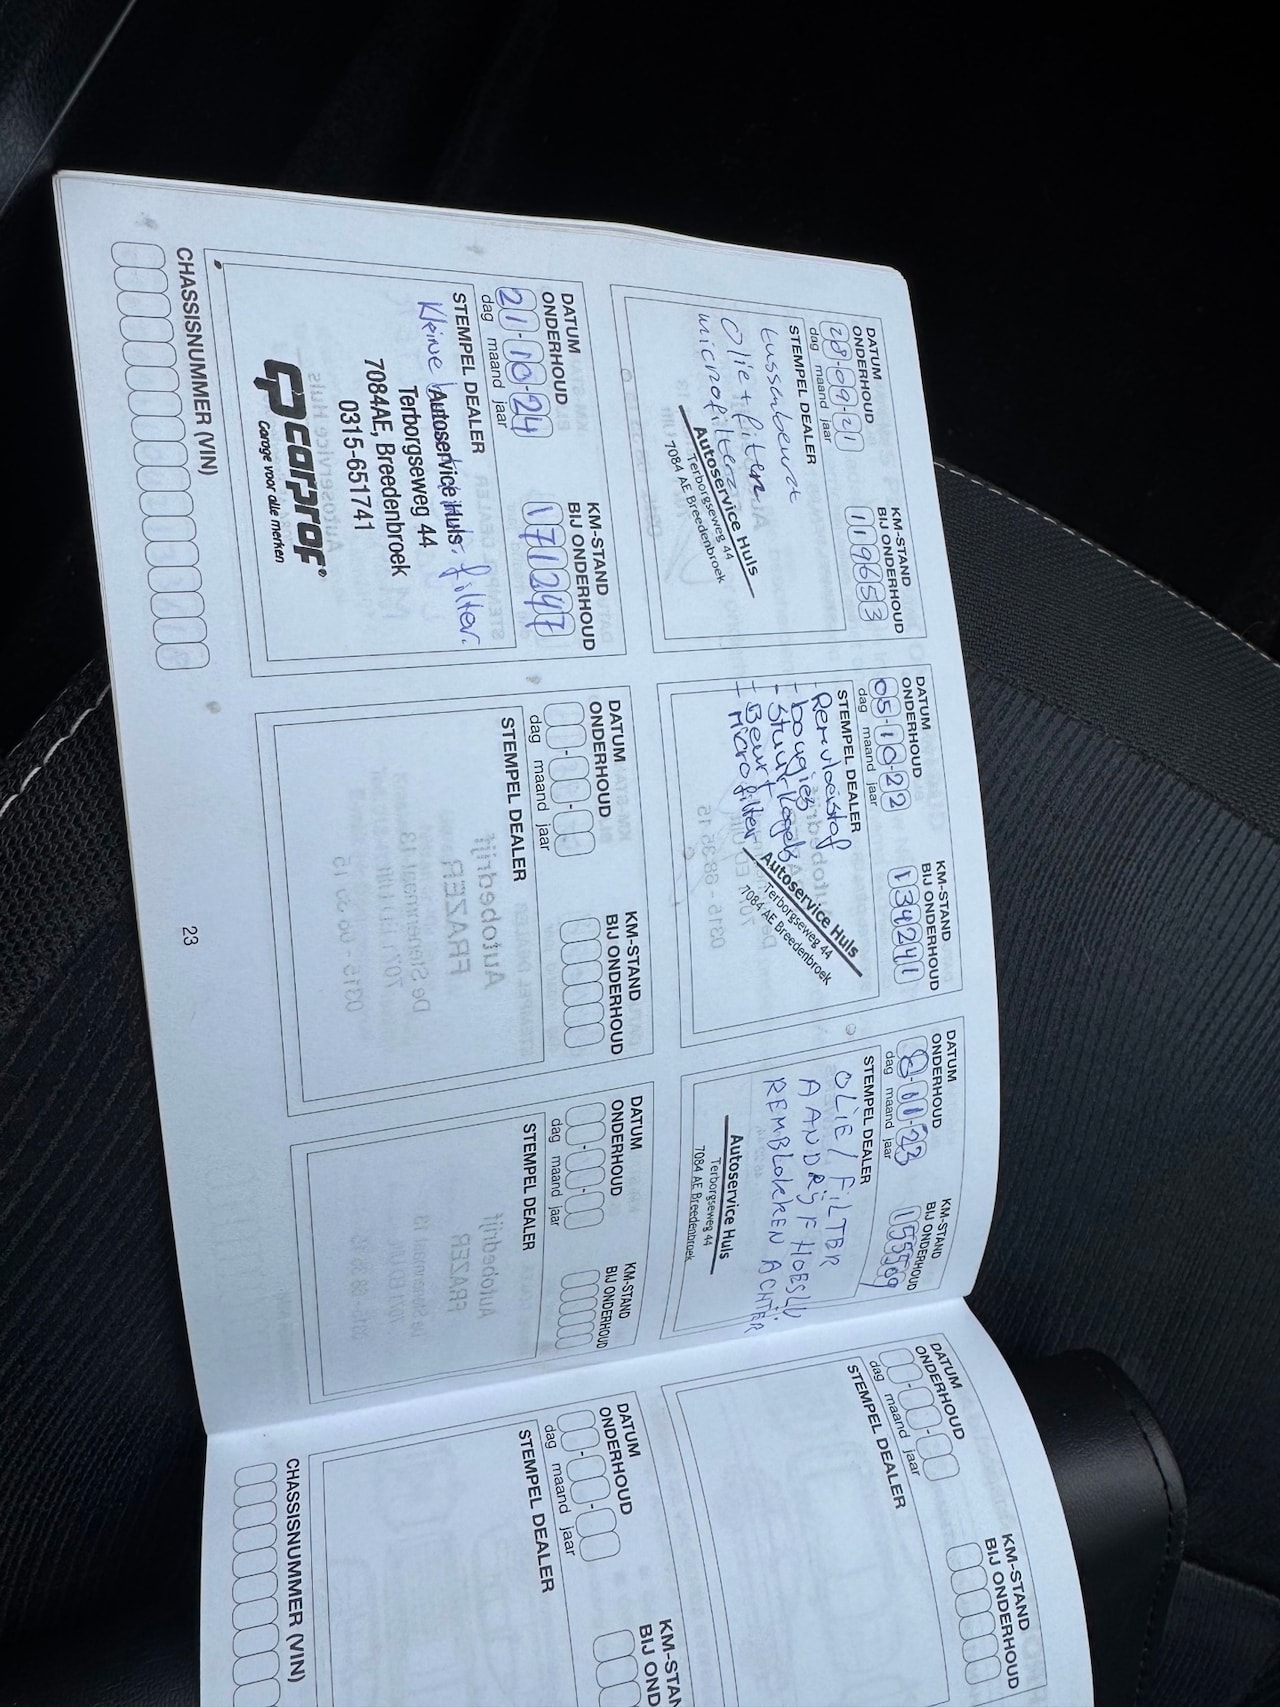 DATUM
ONDERHOUD
28-09-21
dag maand jaar
KM-STAND
BIJ ONDERHOUD
119653
STEMPEL DEALER
tussenbeurt
Olie + filter
microfilter
Autoservice Huls
Terborgseweg 44
7084 AE Breedenbroek
DATUM
ONDERHOUD
05-10-22
dag maand jaar
KM-STAND
BIJ ONDERHOUD
134241
STEMPEL DEALER
- Remvloeistof
- bougies
- Stuurkogels
- Beurt
- Microfilter
Autoservice Huls
Terborgseweg 44
7084 AE Breedenbroek
DATUM
ONDERHOUD
8-11-23
dag maand jaar
KM-STAND
BIJ ONDERHOUD
155509
STEMPEL DEALER
OLIE / FILTER
AANDRIJFHOES LV
REMBLOKKEN ACHTER
Autoservice Huls
Terborgseweg 44
7084 AE Breedenbroek
DATUM
ONDERHOUD
21-10-24
dag maand jaar
KM-STAND
BIJ ONDERHOUD
171247
STEMPEL DEALER
Kleine filter.
Autoservice Huls
Terborgseweg 44
7084AE, Breedenbroek
0315-651741
carprof
Garage voor alle merken
DATUM
ONDERHOUD
dag maand jaar
KM-STAND
BIJ ONDERHOUD
STEMPEL DEALER
DATUM
ONDERHOUD
dag maand jaar
KM-STAND
BIJ ONDERHOUD
STEMPEL DEALER
CHASSISNUMMER (VIN)
23
DATUM
ONDERHOUD
dag maand jaar
KM-STAND
BIJ ONDERHOUD
STEMPEL DEALER
DATUM
ONDERHOUD
dag maand jaar
KM-STAN
BIJ OND
STEMPEL DEALER
CHASSISNUMMER (VIN)